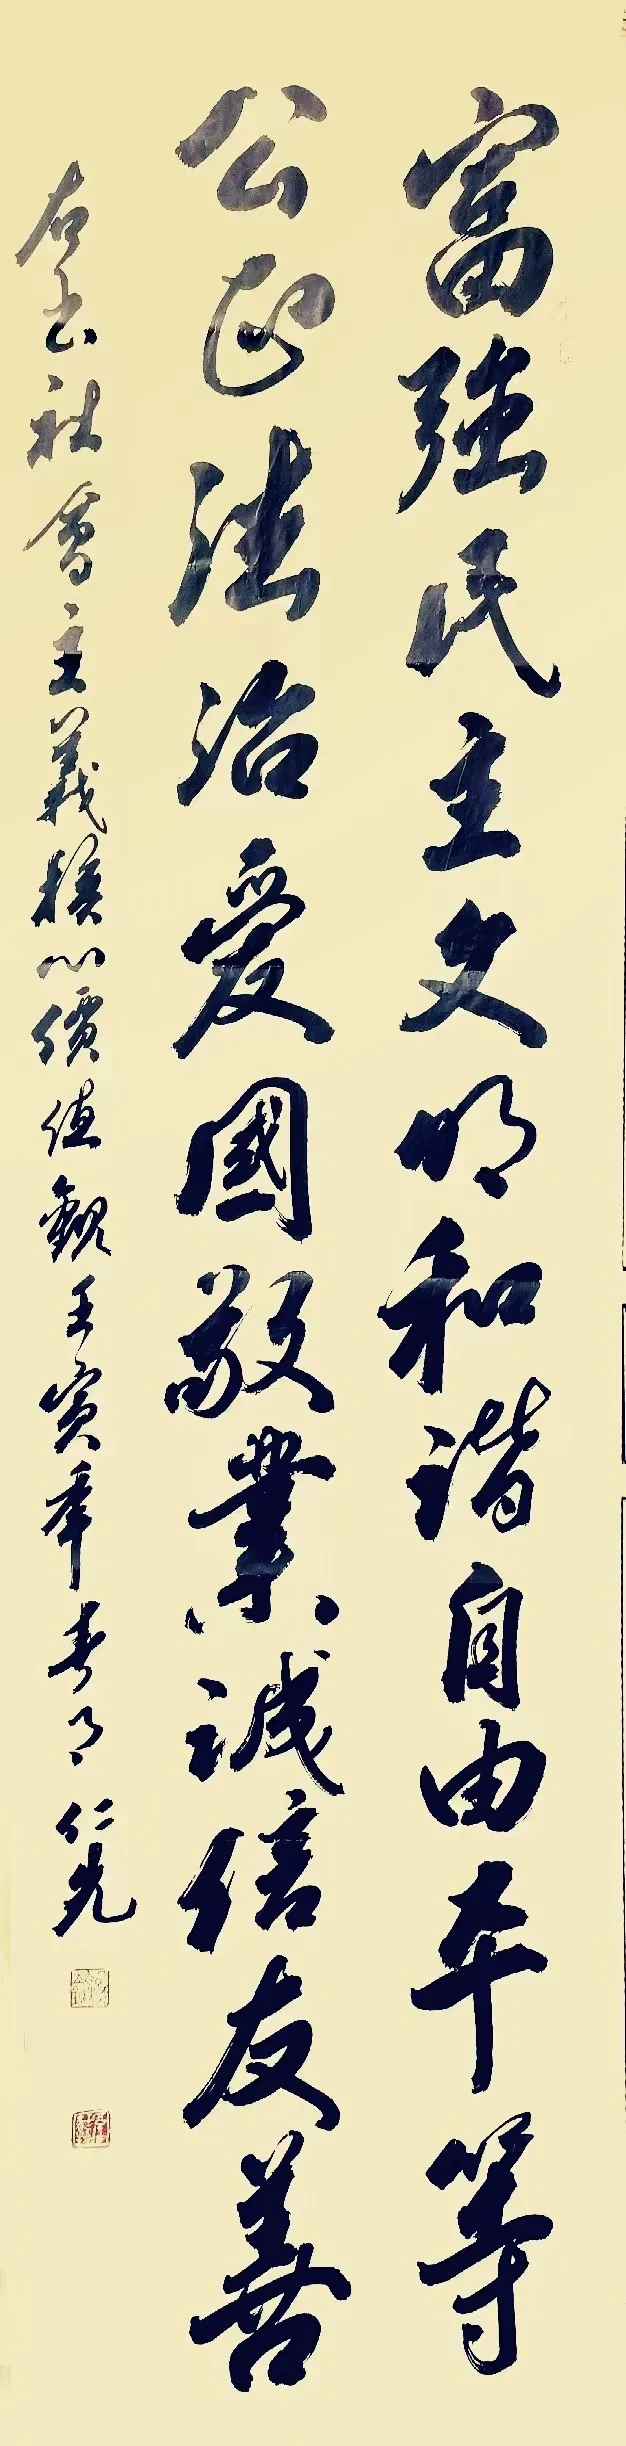 富強民主文明和諧自由平等
公正法治愛國敬業誠信友善
右书社會主義核心價值觀壬寅年春月仁先